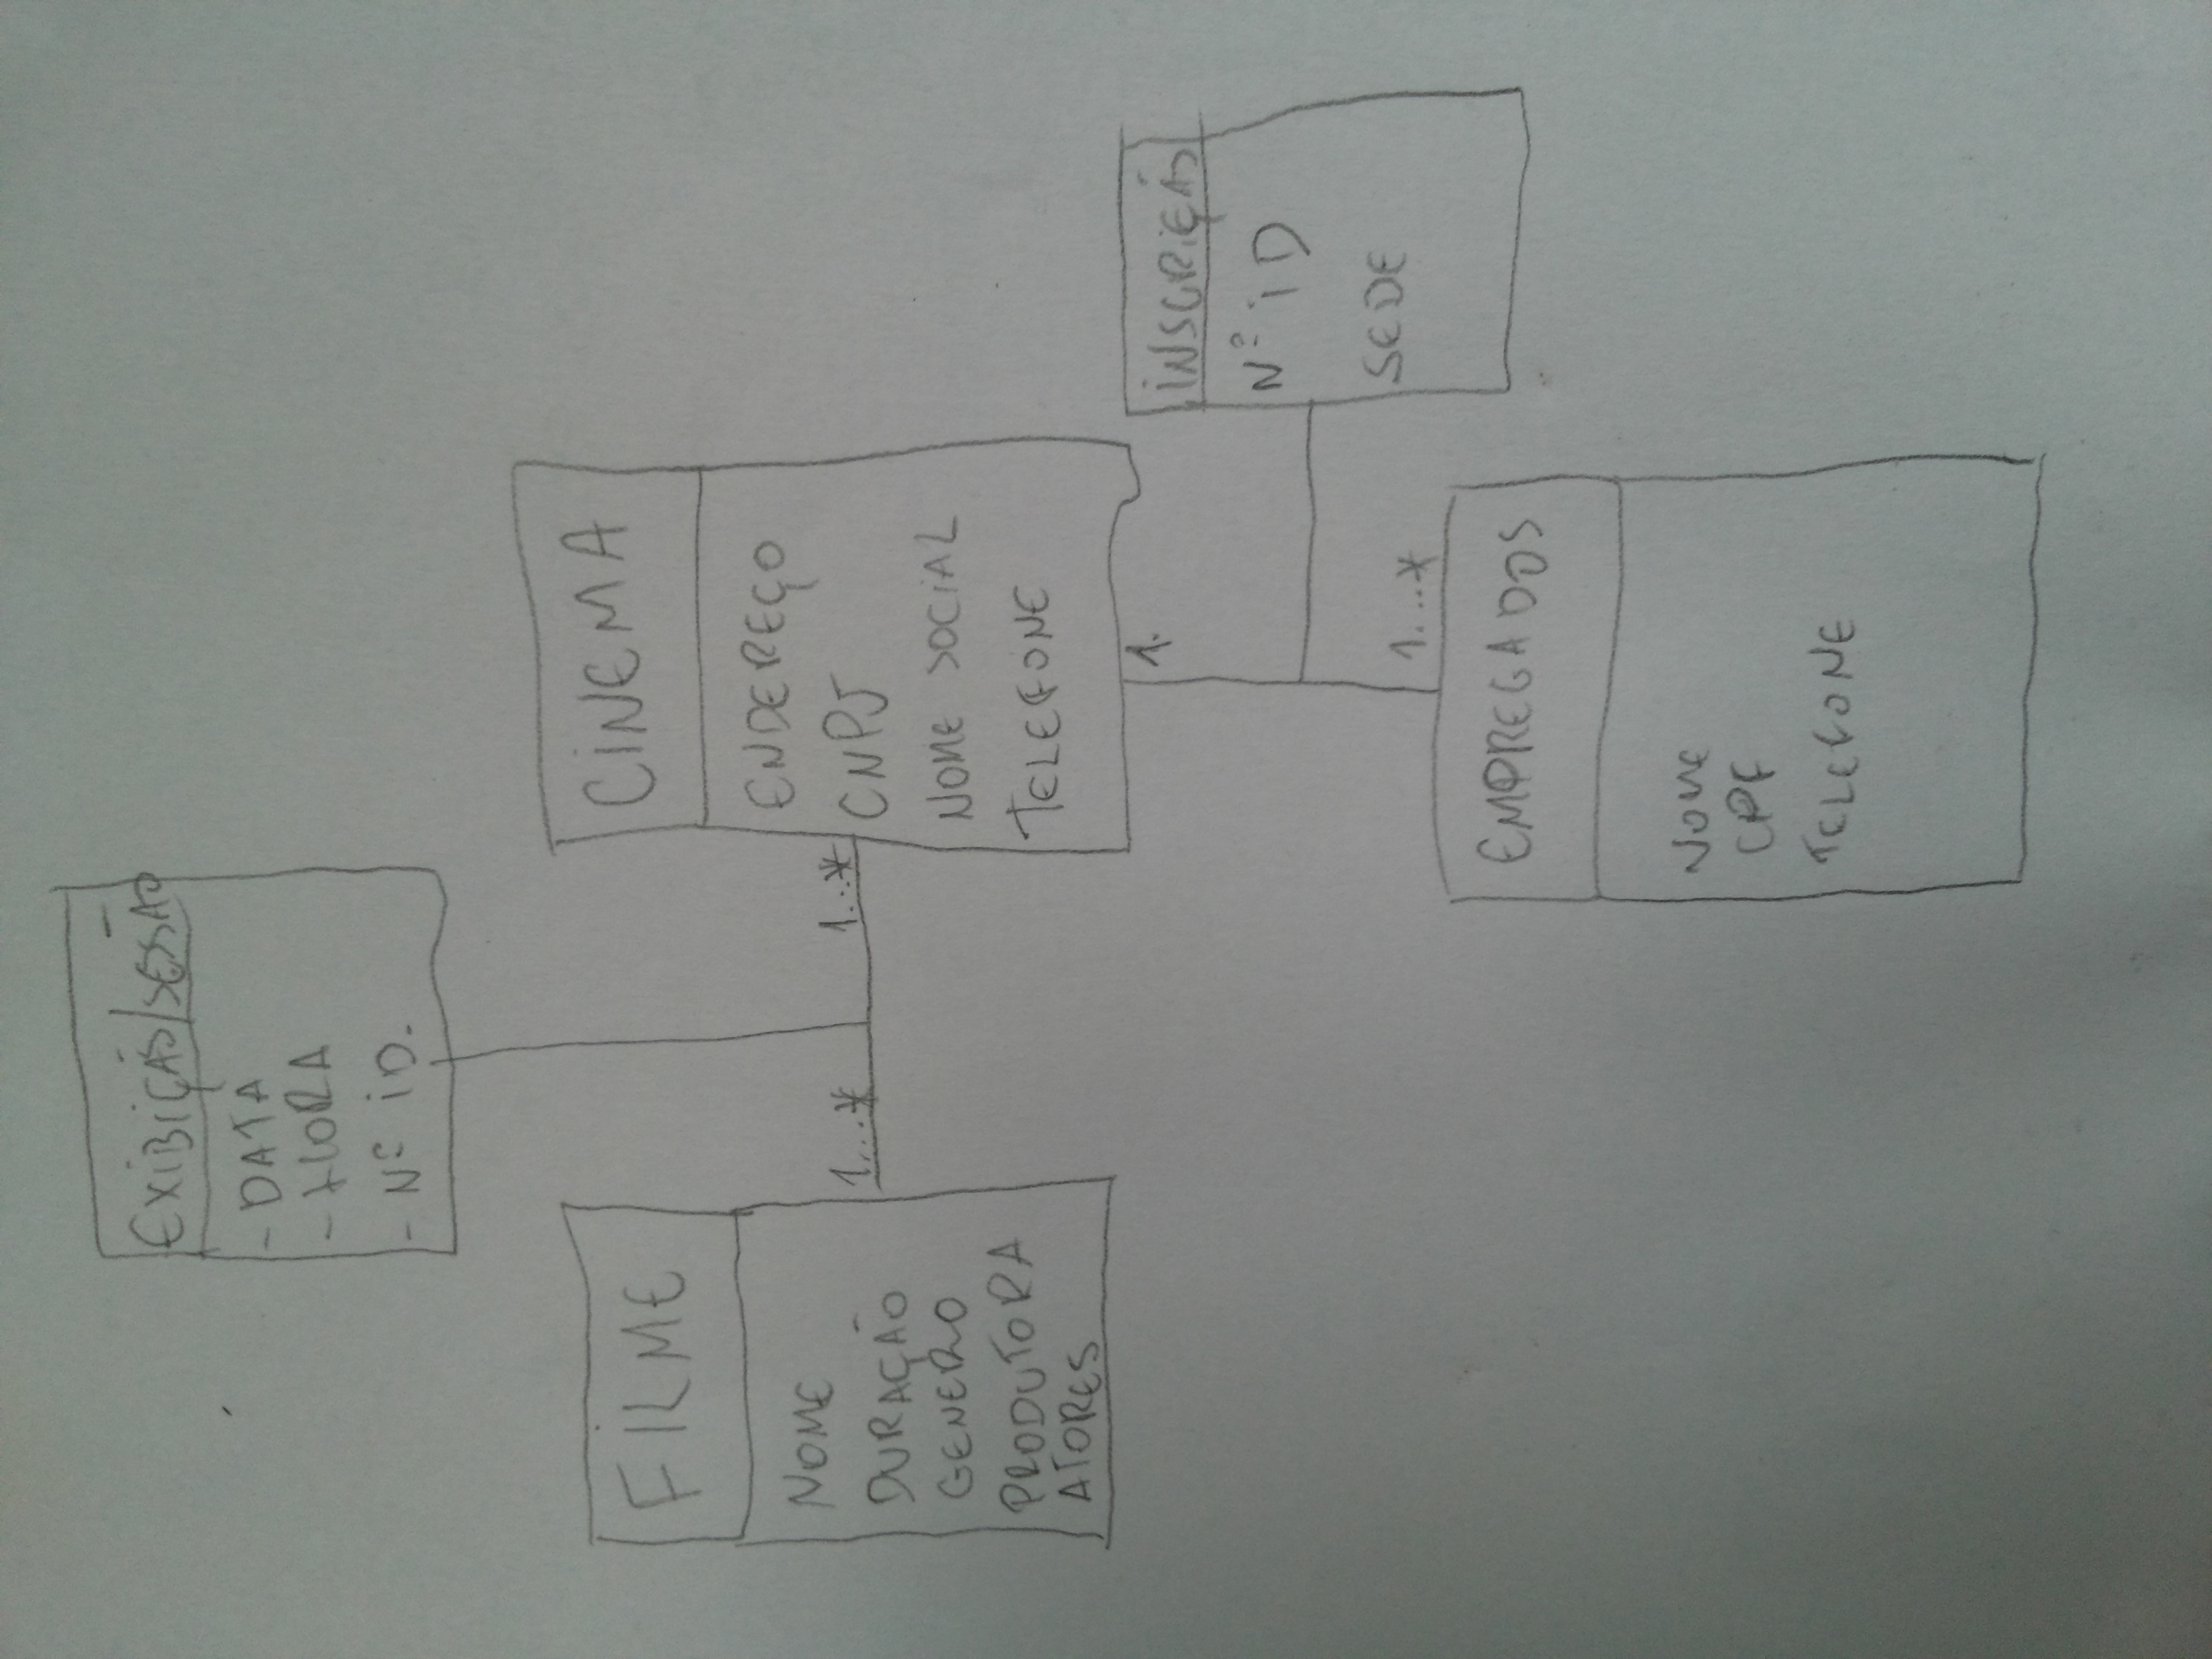 EXIBIÇÃO/SESSÃO
- DATA
- HORA
- Nº ID.
FILME
NOME
DURAÇÃO
GENERO
PRODUTORA
ATORES
1...*
1...*
CINEMA
ENDEREÇO
CNPJ
NOME SOCIAL
TELEFONE
1.
INSCRIÇÃO
Nº ID
SEDE
1...*
EMPREGADOS
NOME
CPF
TELEFONE